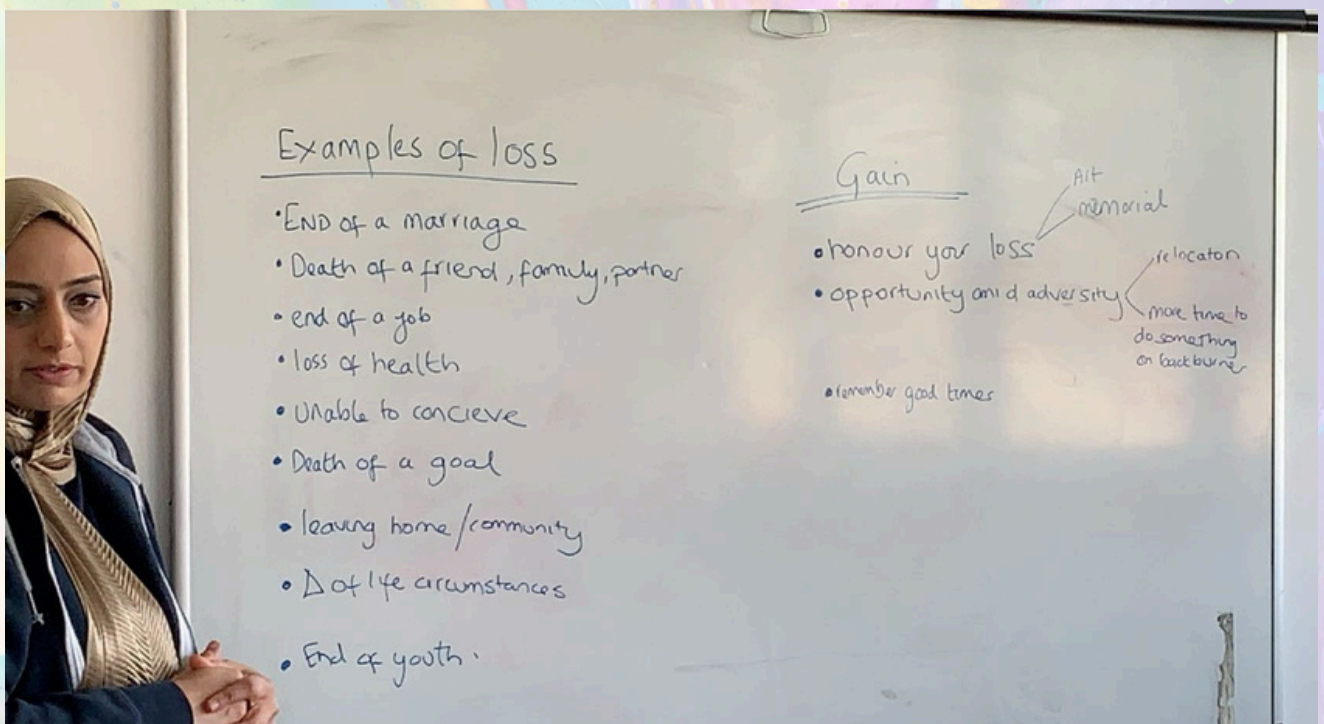 Examples of loss
• END of a marriage
• Death of a friend, family, partner
• end of a job
• loss of health
• Unable to concieve
• Death of a goal
• leaving home/community
• Δ of life circumstances
• End of youth.
Gain
Art
memorial
• honour your loss
relocation
• opportunity amid adversity
more time to
do something
on backburner
• remember good times